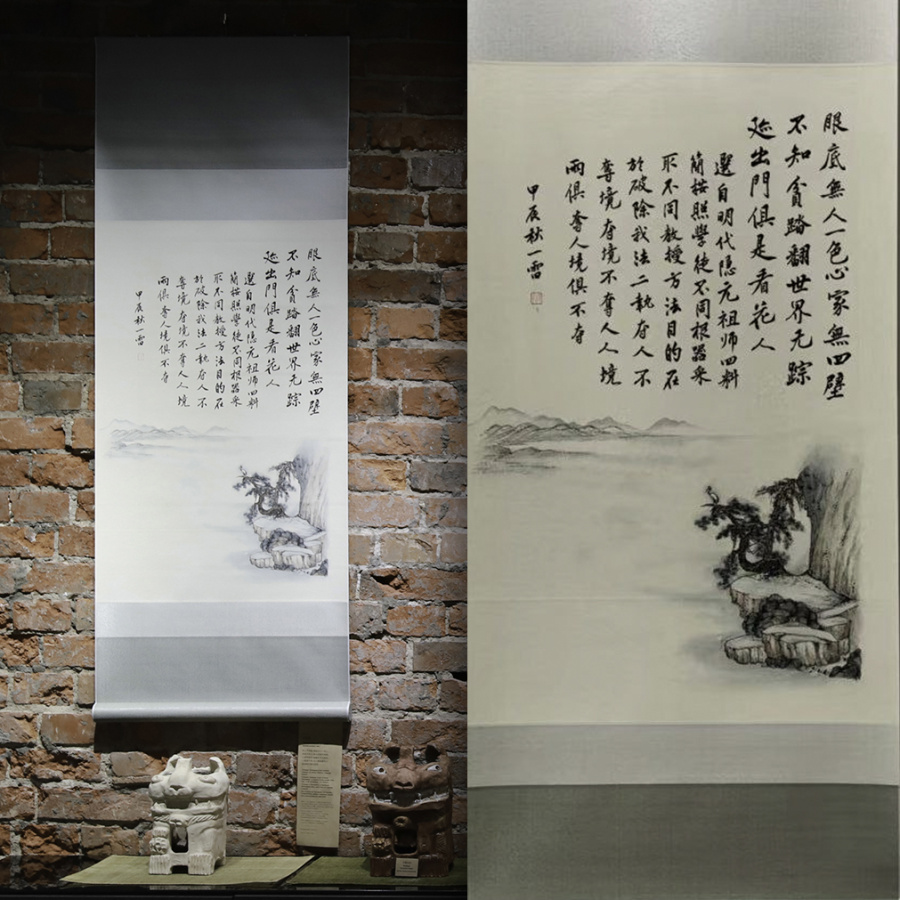 眼底無人一色心家無四壁
不知貪踏翻世界无踪
迹出門俱是看花人
選自明代隐元祖师四料
簡按照學徒不同根器采
取不同教授方法目的在
於破除我法二執夺人不
奪境夺境不奪人人境
兩俱奪人境俱不夺
甲辰秋一雷
眼底無人一色心家無四壁
不知貪踏翻世界无踪
迹出門俱是看花人
選自明代隐元祖师四料
簡按照學徒不同根器采
取不同教授方法目的在
於破除我法二執夺人不
奪境夺境不奪人人境
兩俱奪人境俱不夺
甲辰秋一雷